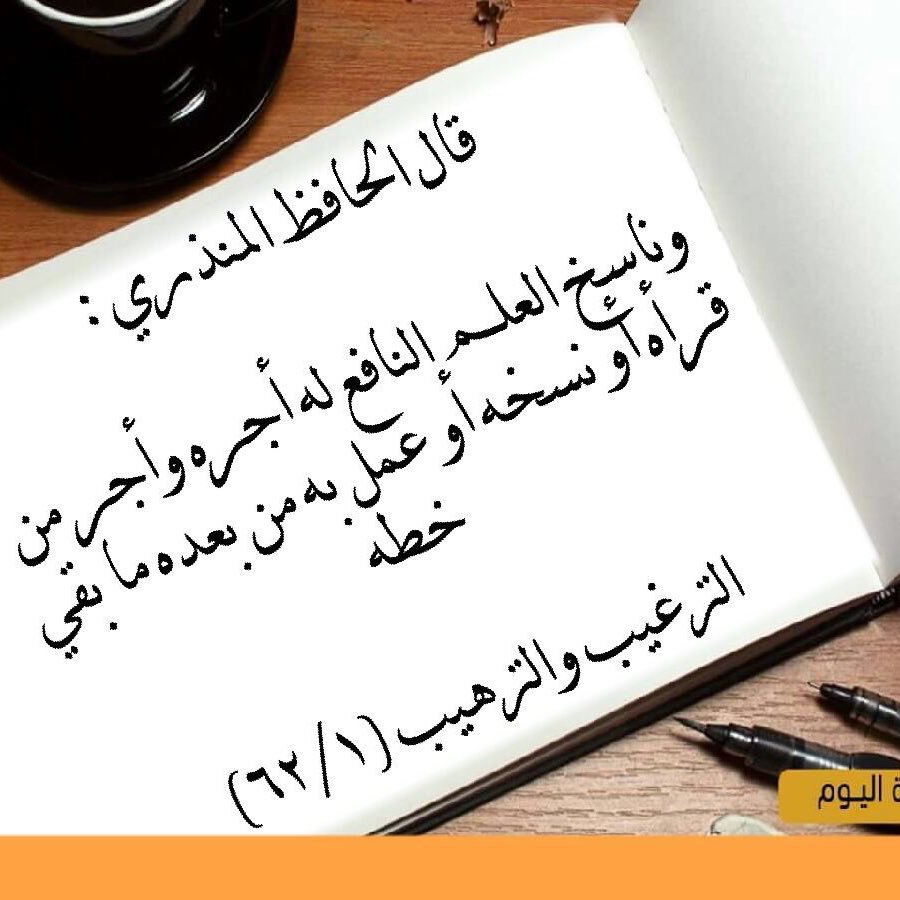 قال الحافظ المنذري :
وناسخ العلم النافع له أجره وأجر من
قرأه أو نسخه أو عمل به من بعده ما بقي
خطه
الترغيب والترهيب (١/ ٦٢)
اليوم